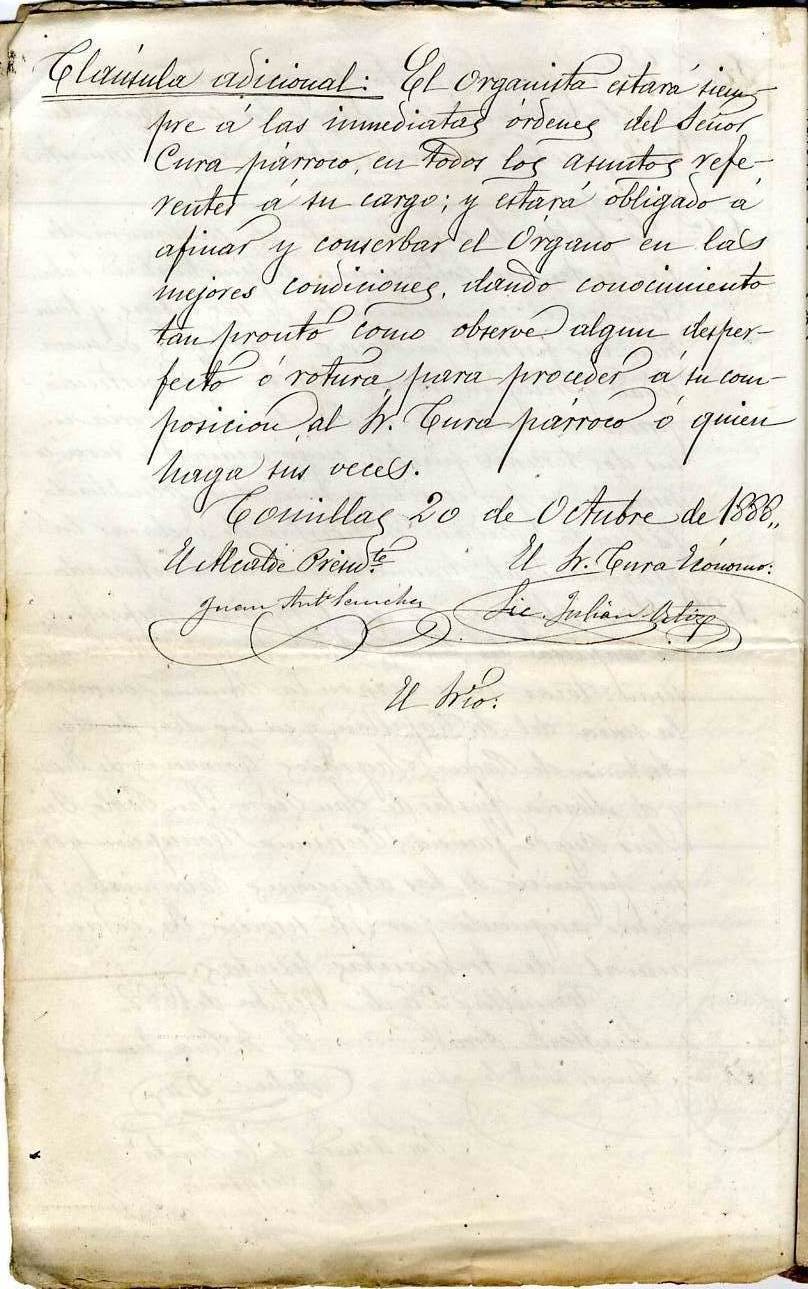 Claúsula adicional: El Organista estará siem-
pre á las inmediatas órdenes del Señor
Cura párroco, en todos los asuntos refe-
rentes á su cargo; y estará obligado á
afinar y conserbar el Órgano en las
mejores condiciones, dando conocimiento
tan pronto como observe algun desper-
fecto ó rotura, para proceder á su com-
posicion, al Sr. Cura párroco ó quien
haga sus veces.
Comillas 20 de Octubre de 1888,,
El Alcalde Presidte. El Sr. Cura Ecónomo:
Juan Anto. Sanchez Lic. Julián Ortiz
El Srio: